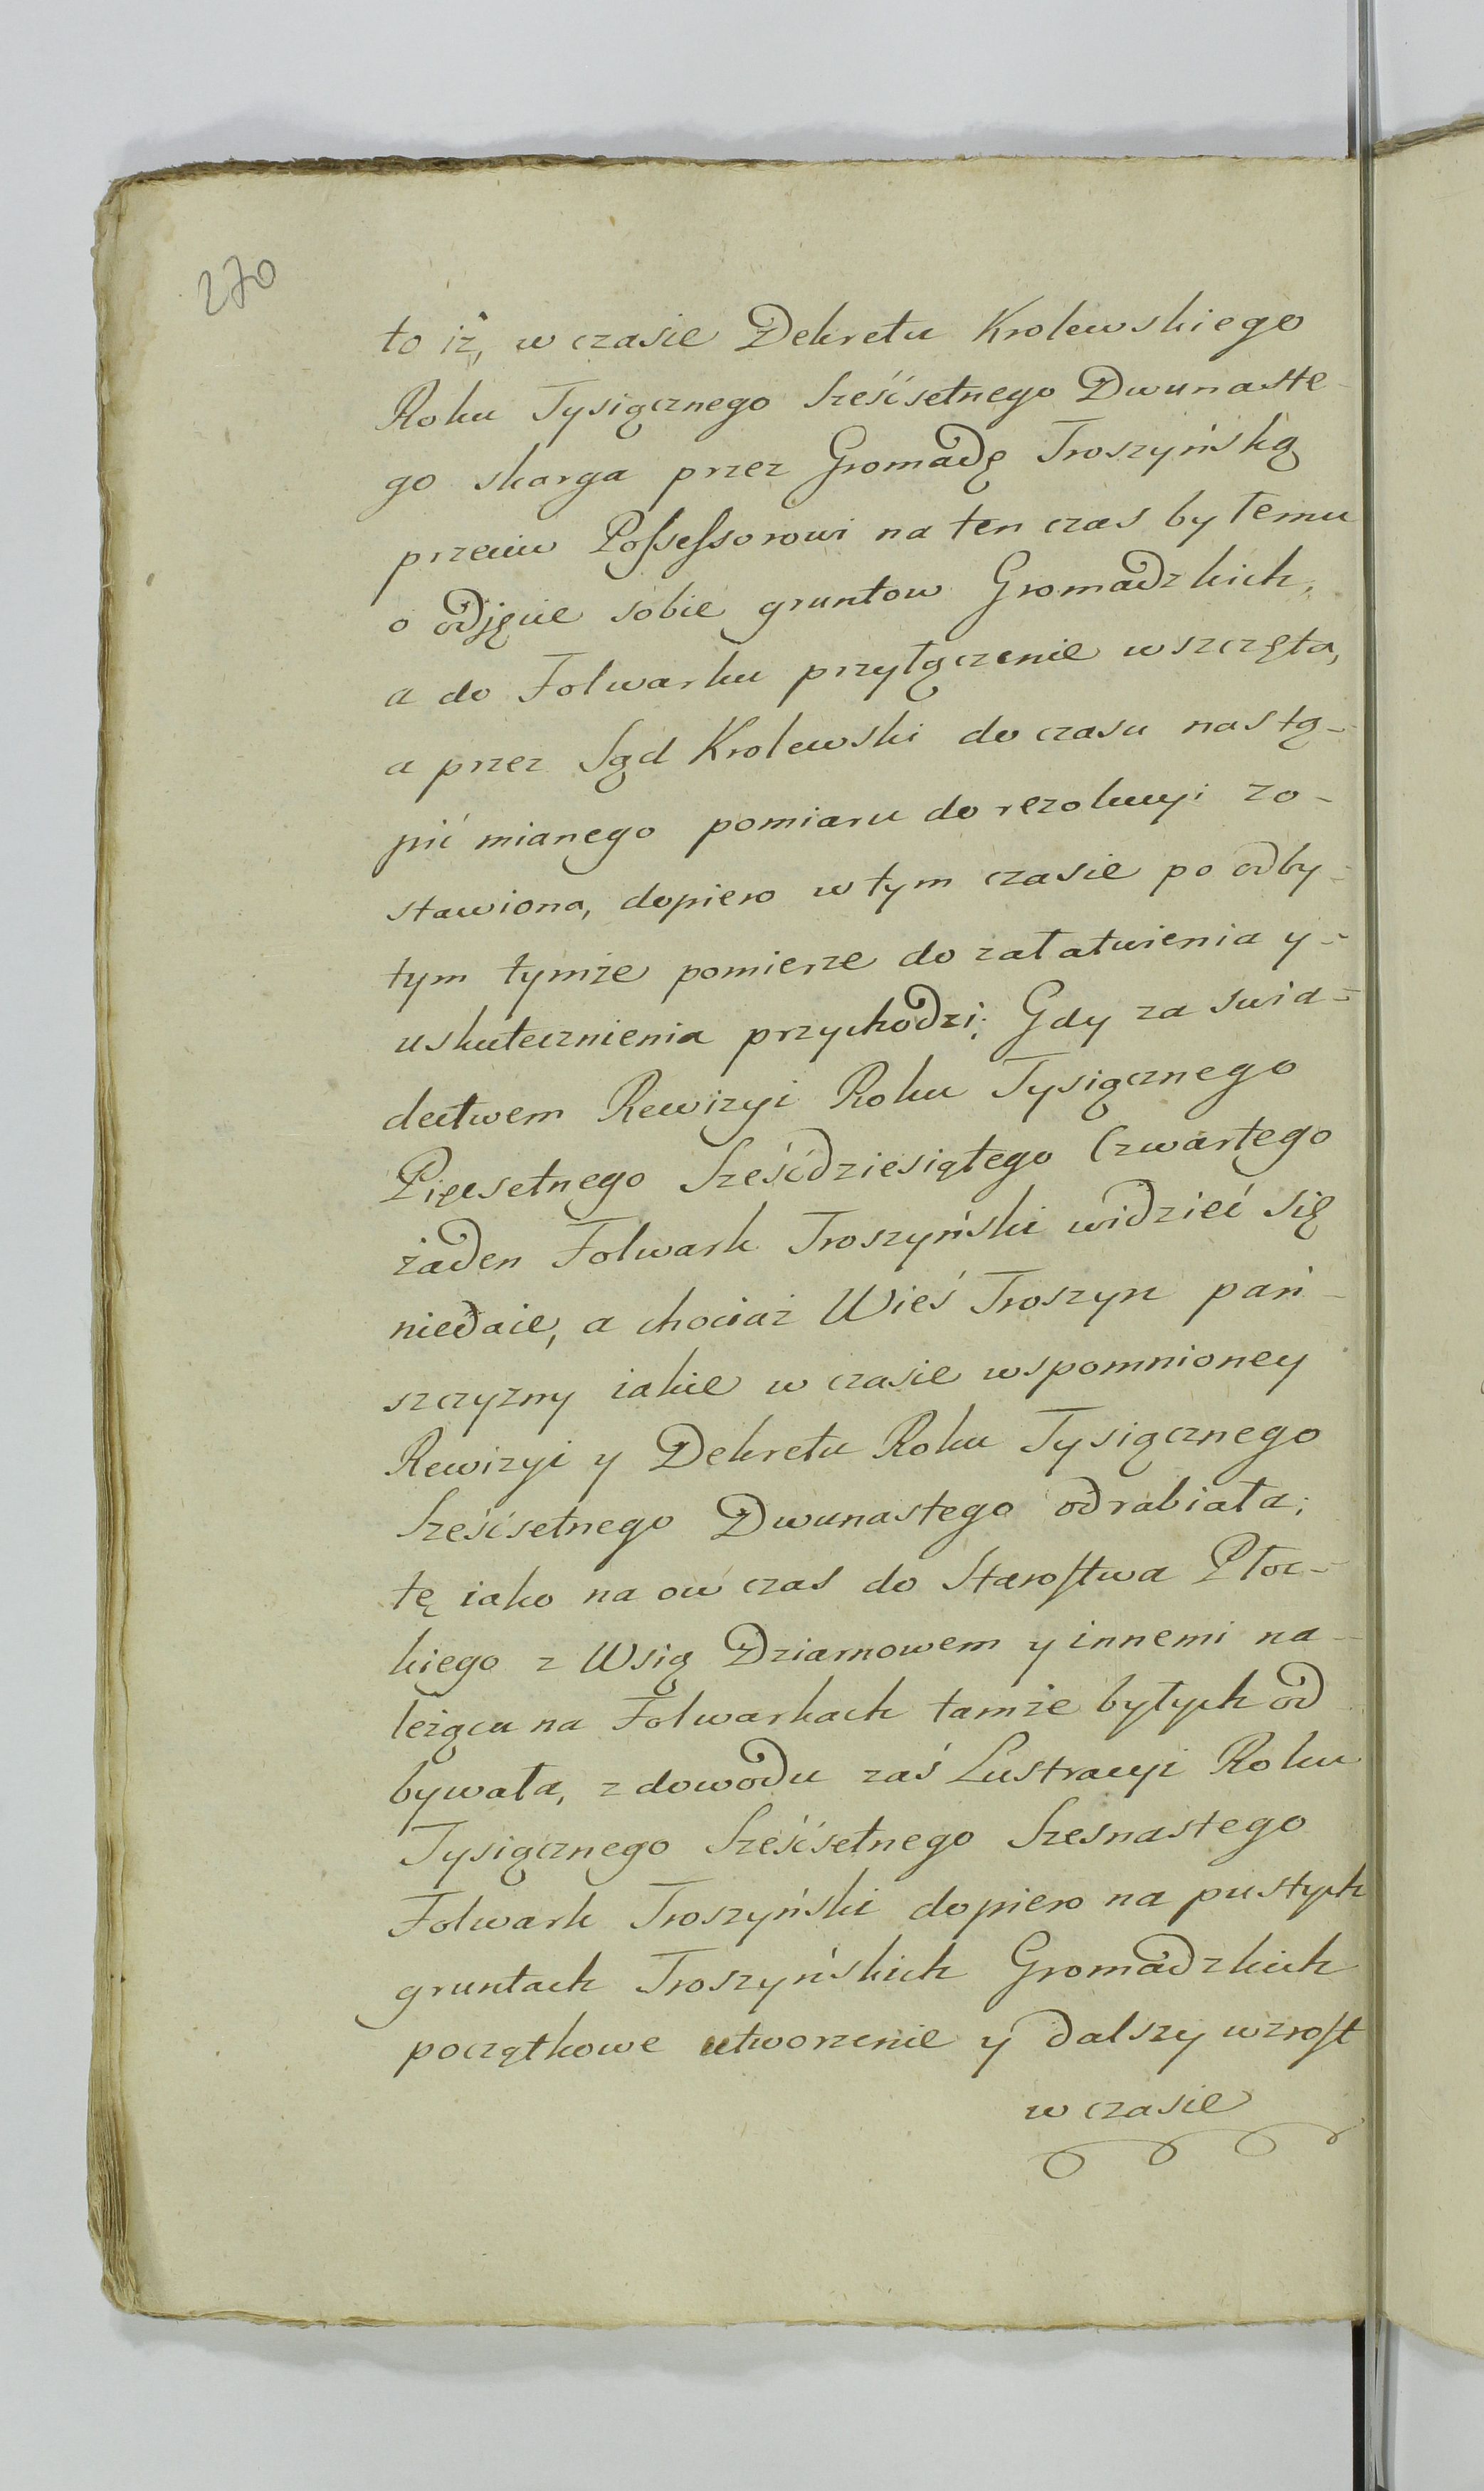 270
to iż, w czasie Dekretu Krolewskiego
Roku Tysiącznego Sześćsetnego Dwunaste-
go skarga przez Gromadę Troszyńską
przeciw Possessorowi na ten czas byłemu
o odjęcie sobie gruntow Gromadzkich,
a do Folwarku przyłączenie wszczęta,
a przez Sąd Krolewski do czasu nastą-
pić mianego pomiaru do rezolucyi zo-
stawiona, dopiero w tym czasie po odby-
tym tymże pomierze do załatwienia y-
uskutecznienia przychodzi; Gdy za swia-
dectwem Rewizyi Roku Tysiącznego
Pięcsetnego Sześćdziesiątego Czwartego
żaden Folwark Troszyński widzieć się
niedaie, a chociaż Wieś Troszyn pań-
szczyzny iakie w czasie wspomnioney
Rewizyi y Dekretu Roku Tysiącznego
Sześćsetnego Dwunastego odrabiała;
tę iako na ow czas do Starostwa Płoc-
kiego z Wsią Dziarnowem y innemi na-
leżąca na Folwarkach tamże byłych od
bywała, z dowodu zaś Lustracyi Roku
Tysiącznego Sześćsetnego Szesnastego
Folwark Troszyński dopiero na pustych
gruntach Troszyńskich Gromadzkich
początkowe utworzenie y dalszy wzrost
w czasie